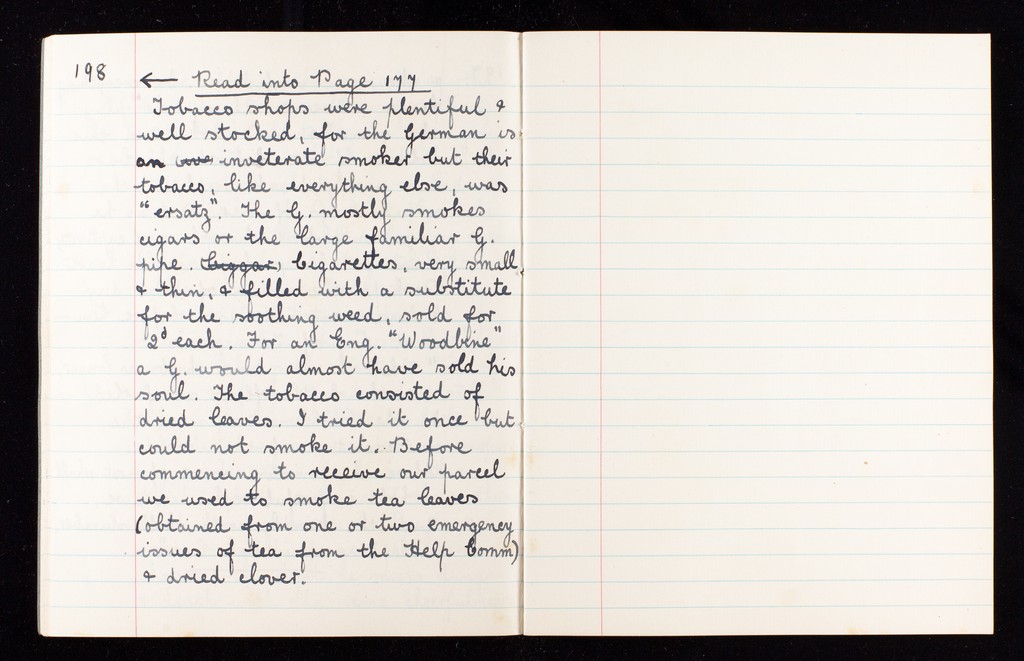 198
← Read into Page 177
Tobacco shops were plentiful &
well stocked, for the German is
an inveterate smoker but their
tobacco, like everything else, was
"ersatz". The G. mostly smokes
cigars or the large familiar G.
pipe. Ciggar, Cigarettes, very small
& thin, & filled with a substitute
for the soothing weed, sold for
2d each. For an Eng. "Woodbine"
a G. would almost have sold his
soul. The tobacco consisted of
dried leaves. I tried it once but
could not smoke it. Before
commencing to receive our parcel
we used to smoke tea leaves
(obtained from one or two emergency
issues of tea from the Help Comm)
& dried clover.